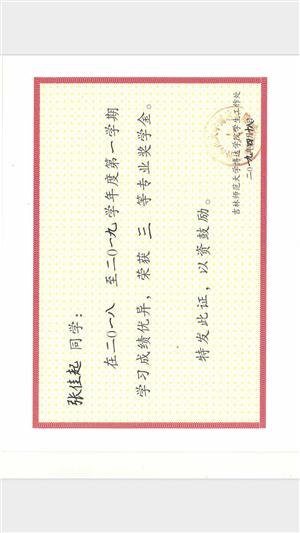 张佳起 同学：
在二〇一八 至二〇一九学年度第一学期
学习成绩优异，荣获 三 等专业奖学金。
特发此证，以资鼓励。
吉林师范大学博达学院学生工作处
二〇一九